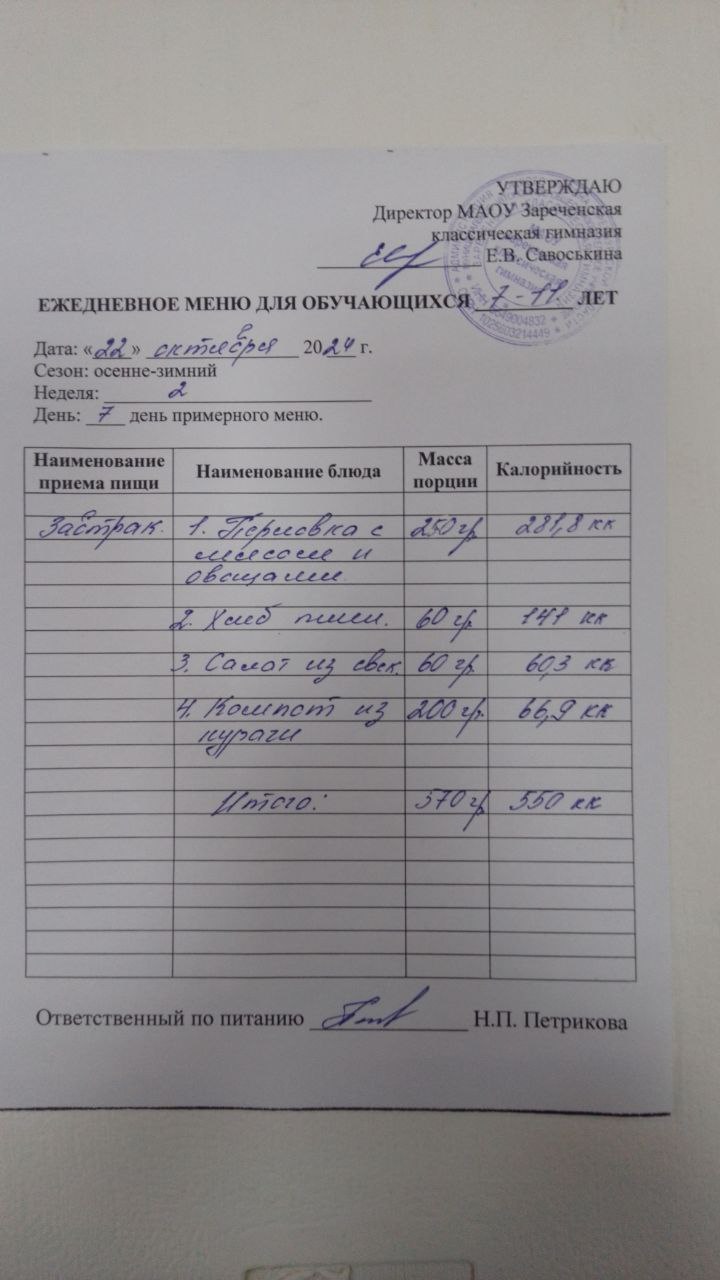 УТВЕРЖДАЮ
Директор МАОУ Зареченская
классическая гимназия
Е.В. Савоськина
ЕЖЕДНЕВНОЕ МЕНЮ ДЛЯ ОБУЧАЮЩИХСЯ 7-11 ЛЕТ
Дата: «22» октября 2024 г.
Сезон: осенне-зимний
Неделя: 2
День: 7 день примерного меню.
Наименование приема пищи Наименование блюда Масса порции Калорийность
Завтрак. 1. Перловка с 250 гр 281,8 кк
мясом и
овощами.
2. Хлеб пшен. 60 гр 141 кк
3. Салат из свек. 60 гр. 60,3 кк
4. Компот из 200 гр. 66,9 кк
кураги
Итого: 570 гр 550 кк
Ответственный по питанию Н.П. Петрикова